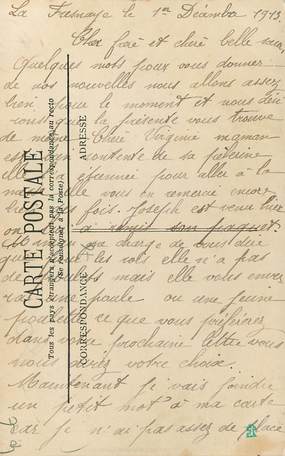 La Fresnaye le 1er Décembre 1913
Cher frère et chère belle sœur
Quelques mots pour vous donner
de nos nouvelles nous allons assez
bien pour le moment et nous
que la présente vous trouve
de même Chère Virginie maman
est bien contente de sa pèlerine
pour aller à la
elle vous en remercie encore
fois. Joseph est venu hier
a remis son paquet.
charge de vous dire
que les cols elle n'a pas
de mais elle vous
une poule ou une jeune
poulette ce que vous préférez
dans votre prochaine lettre vous
nous direz votre choix.
Maintenant je vais joindre
un petit mot à ma carte
car je n'ai pas assez de place
CARTE POSTALE
Tous les pays étrangers n'acceptent pas la correspondance au recto
(Se renseigner à la Poste)
CORRESPONDANCE
ADRESSE